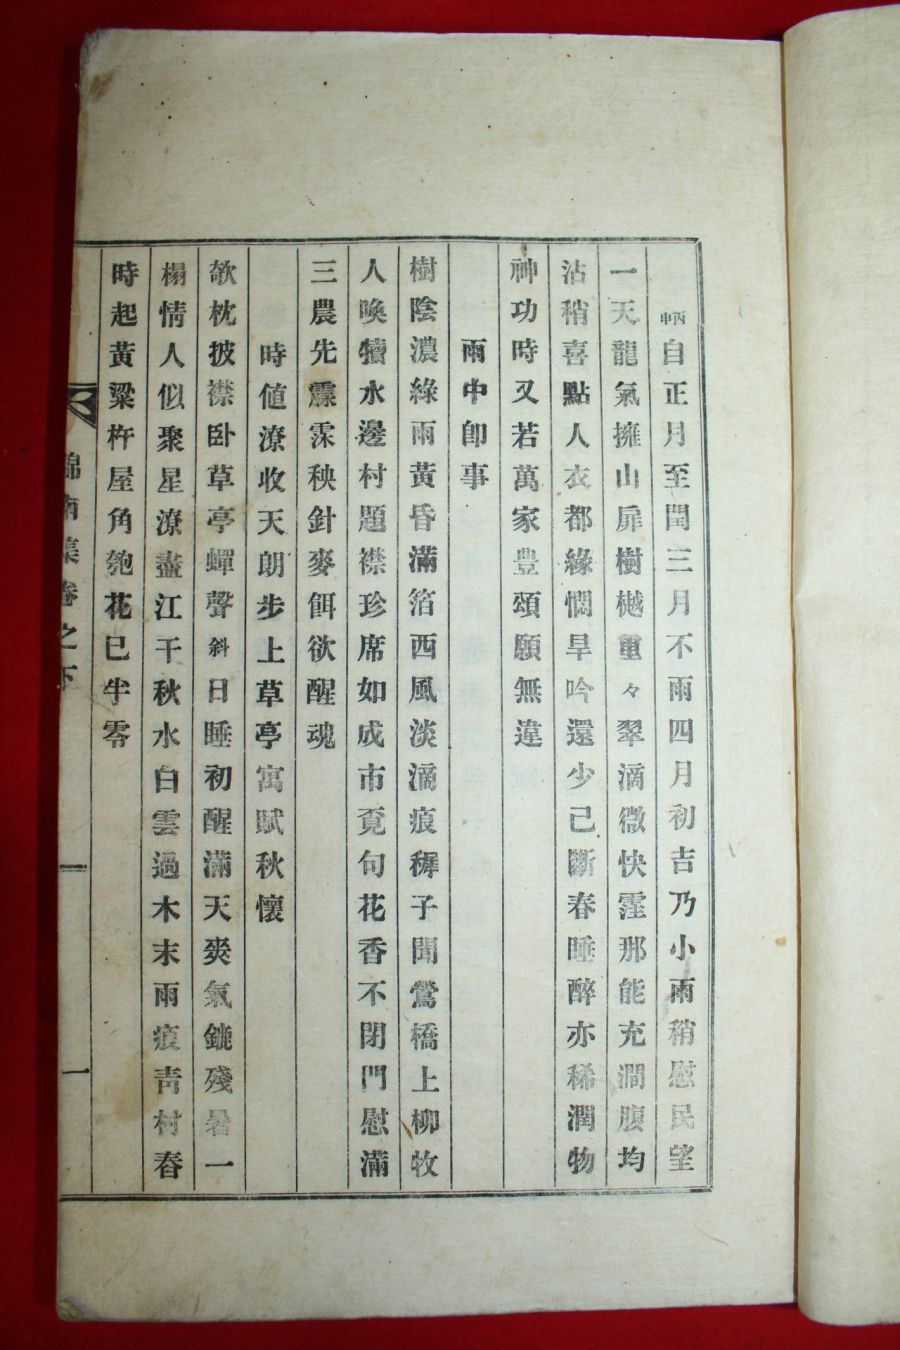 丙申自正月至閏三月不雨四月初吉乃小雨稍慰民望
一天龍氣擁山扉樹樾重々翠滴微快霔那能充澗腹均
沾稍喜點人衣都緣憫旱吟還少已斷春睡醉亦稀潤物
神功時又若萬家豊頌願無違
雨中卽事
樹陰濃綠雨黃昏滿箔西風淡滴痕穉子聞鶯橋上柳牧
人喚犢水邊村題襟珍席如成市覔句花香不閉門慰滿
三農先霂霂秧針麥餌欲醒魂
時値潦收天朗步上草亭寓賦秋懷
欹枕披襟卧草亭蟬聲斜日睡初醒滿天爽氣鏕殘暑一
榻情人似聚星潦盡江干秋水白雲過木末雨痕靑村舂
時起黃粱杵屋角匏花已半零
錦南集卷之下
一